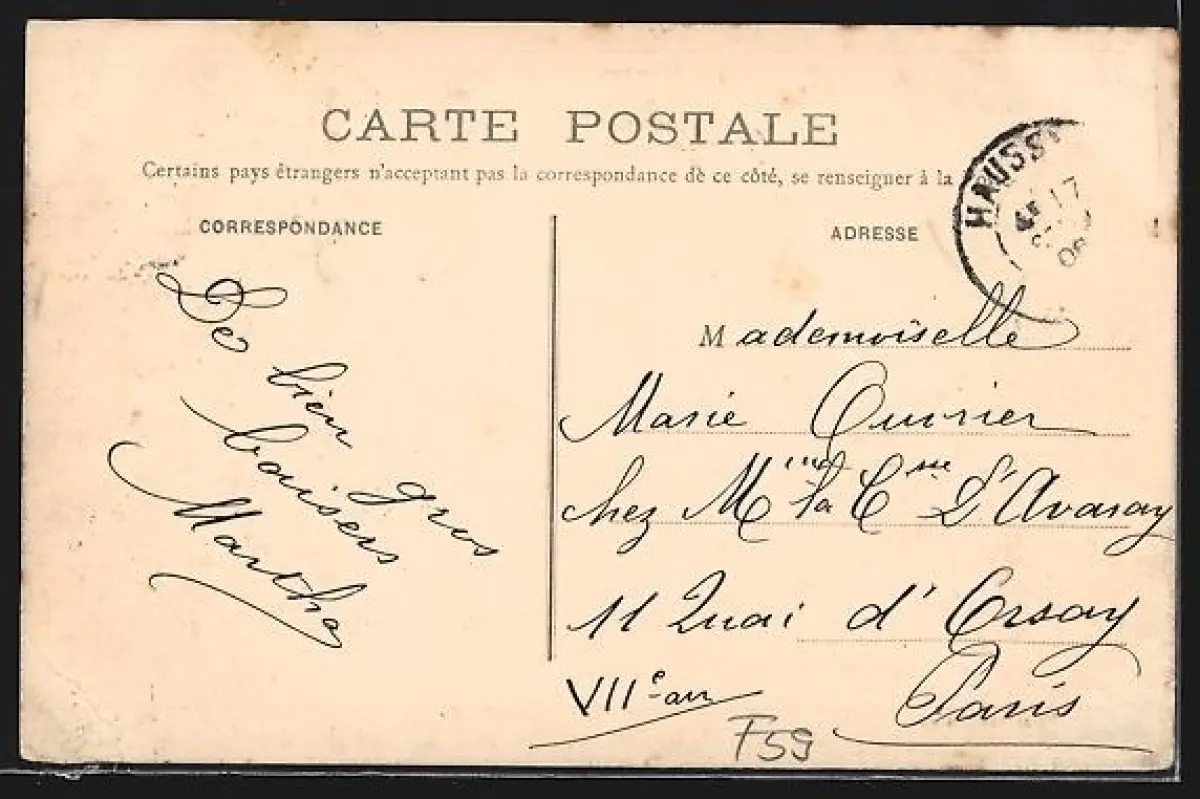 CARTE POSTALE
Certains pays étrangers n'acceptant pas la correspondance de ce côté, se renseigner à la
CORRESPONDANCE
De bien gros
baisers
Martha
ADRESSE
HAUSS
17
Mademoiselle
Marie Ouvrier
chez Mme la Csse D'Avaray
11 Quai d'Orsay
Paris
VIIe arr
F59